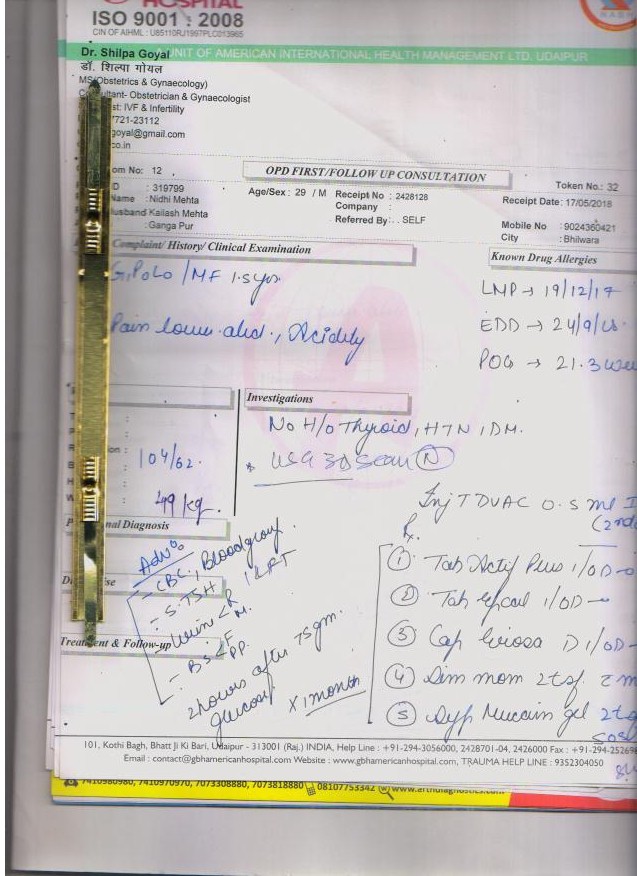 HOSPITAL
ISO 9001 : 2008
CIN OF AIHML : U85110RJ1997PLC013965
A UNIT OF AMERICAN INTERNATIONAL HEALTH MANAGEMENT LTD. UDAIPUR
Dr. Shilpa Goyal
डॉ. शिल्पा गोयल
MS(Obstetrics & Gynaecology)
Consultant- Obstetrician & Gynaecologist
st: IVF & Infertility
721-23112
goyal@gmail.com
co.in
om No: 12
OPD FIRST/FOLLOW UP CONSULTATION
Token No.: 32
D : 319799
Name : Nidhi Mehta
usband Kailash Mehta
: Ganga Pur
Age/Sex : 29 / M
Receipt No : 2428128
Company :
Referred By : . . SELF
Receipt Date: 17/05/2018
Mobile No : 9024360421
City : Bhilwara
Complaint/ History/ Clinical Examination
Known Drug Allergies
G1P0L0 / MF 1.5 yrs.
Pain lower abd., Acidity
LMP → 19/12/17
EDD → 24/9/18
POG → 21.3 wee
Investigations
No H/o Thyroid, HTN, DM.
* USG 3D Scan (N)
104/62.
49 kg.
nal Diagnosis
Inj T DVAC 0.5 ml I
(2nd
Rx.
Adv:
- CBC, Blood group.
- S.TSH
- Urine < R M.
- BS < F PP.
2 hours after 75 gm.
glucose
x 1 month
Treatment & Follow-up
① Tab Plus 1/OD -
② Tab 1/OD -
③ Cap D 1/OD -
④ mom 2 tsf.
⑤ Syp Mucaine gel 2 ts
101, Kothi Bagh, Bhatt Ji Ki Bari, Udaipur - 313001 (Raj.) INDIA, Help Line : +91-294-3056000, 2428701-04, 2426000 Fax : +91-294-252698
Email : contact@gbhamericanhospital.com Website : www.gbhamericanhospital.com, TRAUMA HELP LINE : 9352304050
7410980980, 7410970970, 7073308880, 7073818880 08107753342